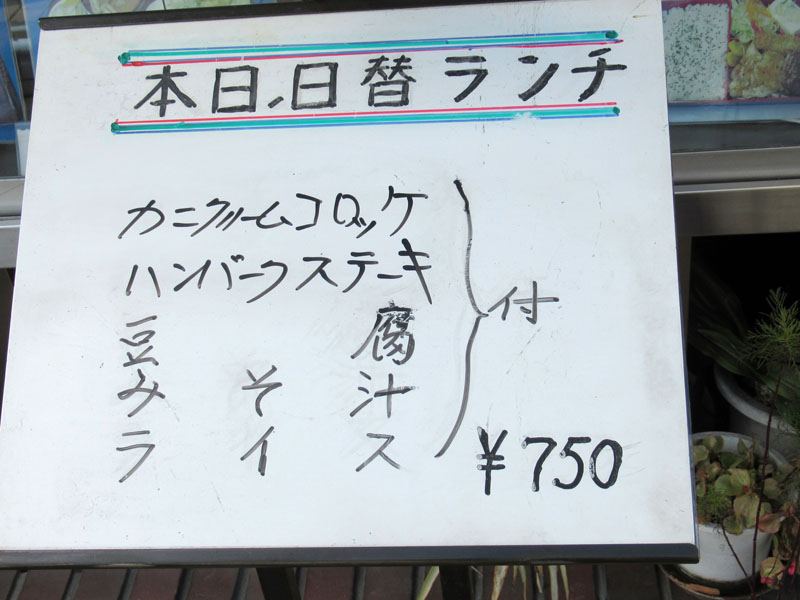 本日、日替ランチ
カニクリームコロッケ
ハンバークステーキ
豆腐
みそ汁
ライス
付
¥750